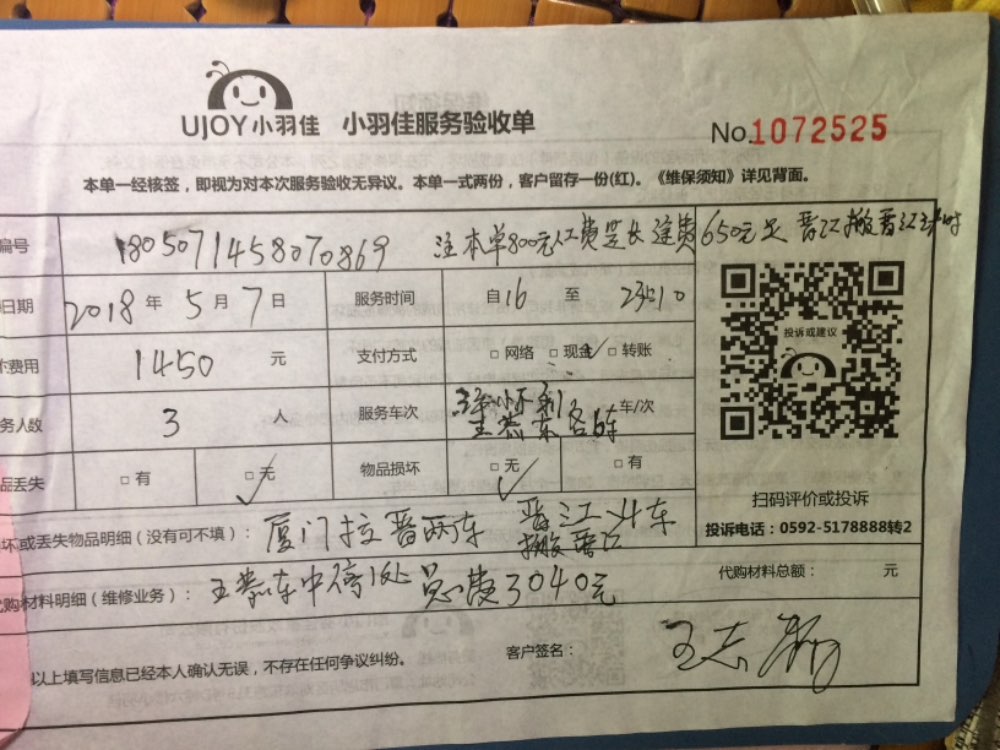 UJOY小羽佳 小羽佳服务验收单
No.1072525
本单一经核签，即视为对本次服务验收无异议。本单一式两份，客户留存一份(红)。《维保须知》详见背面。
编号 1805071458070869 注本单800元人工费是长途费650元是晋江搬晋江
日期 2018年5月7日 服务时间 自16至23:10
费用 1450元 支付方式 □网络 □现金✓ □转账
务人数 3人 服务车次 各1车 车/次
品丢失 □有 □无✓ 物品损坏 □无✓ □有
投诉或建议
扫码评价或投诉
投诉电话：0592-5178888转2
坏或丢失物品明细（没有可不填）： 厦门拉晋两车 晋江4车 搬晋江
代购材料总额： 元
购材料明细（维修业务）： 中停1处 总费3040元
以上填写信息已经本人确认无误，不存在任何争议纠纷。
客户签名： 王志